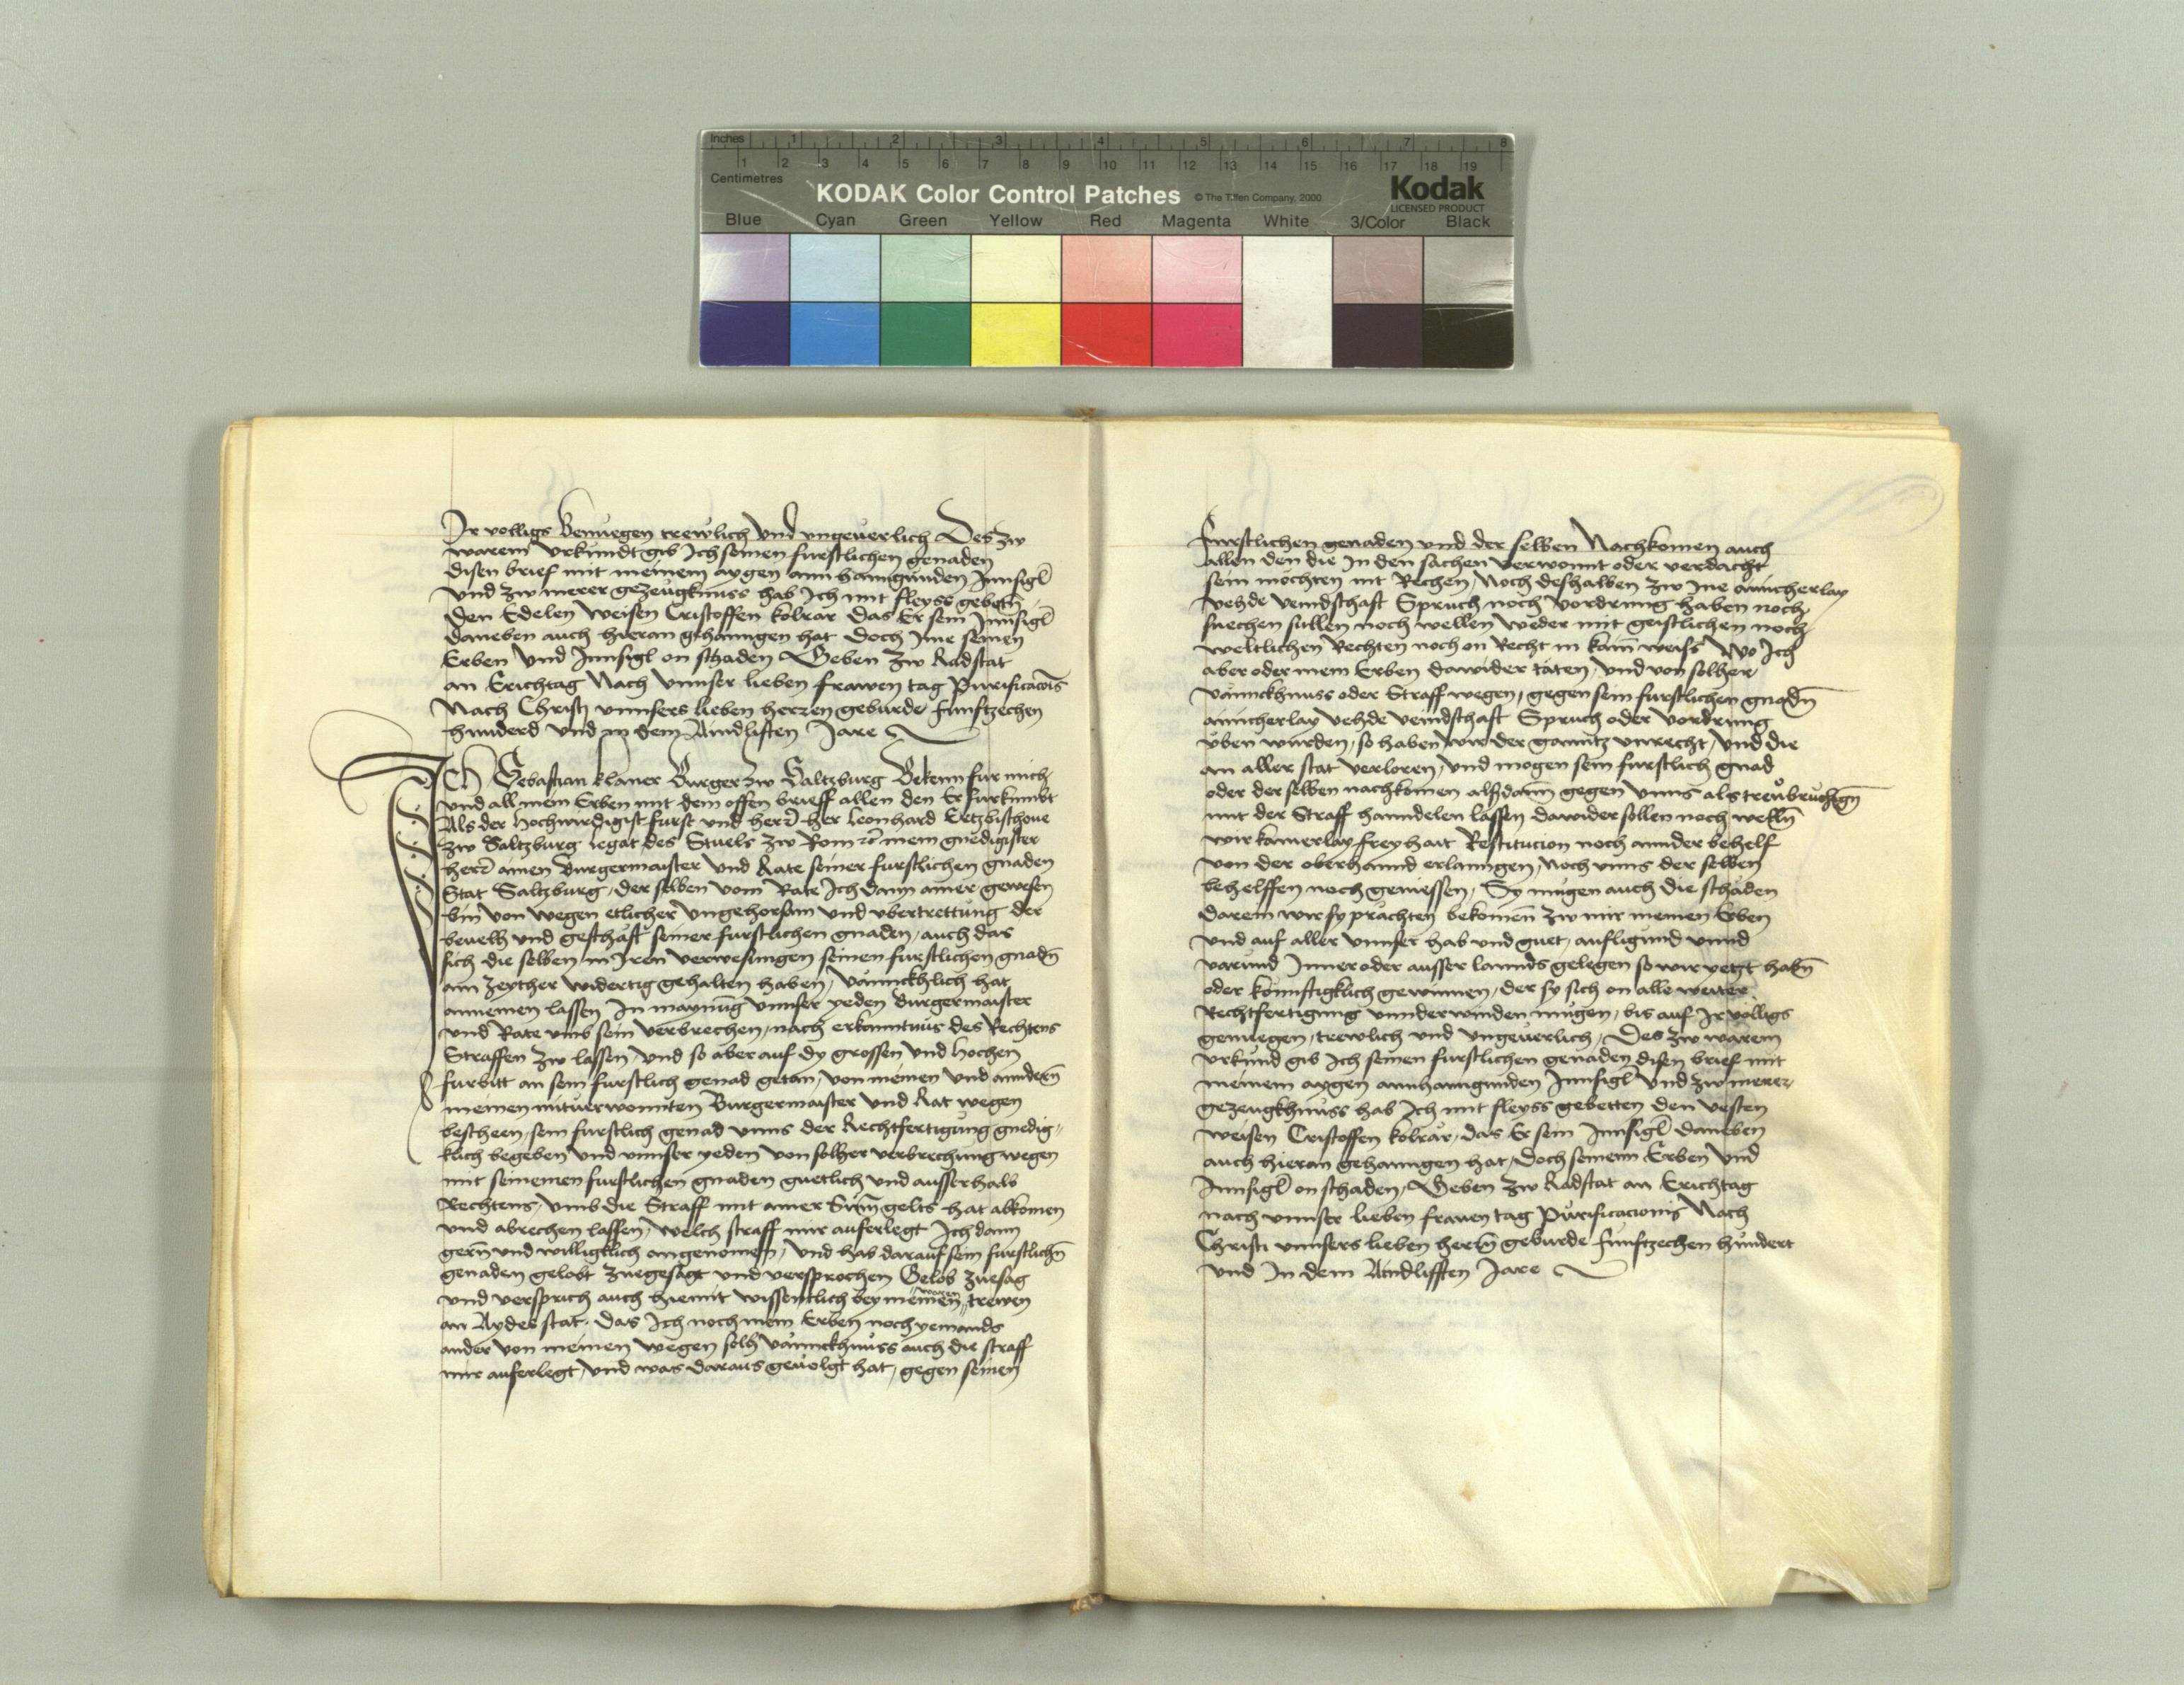 Inches 1 2 3 4 5 6 7 8
1 2 3 4 5 6 7 8 9 10 11 12 13 14 15 16 17 18 19
Centimetres
KODAK Color Control Patches © The Tiffen Company, 2000 Kodak
LICENSED PRODUCT
Blue Cyan Green Yellow Red Magenta White 3/Color Black
Ir volligs Benuegen trewlich Vnd vngeuerlich Des zw
warem vrkundt gib Ich seinen furstlichen genaden
disen brief mit meinem aygen ann hanngunden Innsigl
Vnd zw merer gezeugknuss hab Ich mit fleyss gebetñ
den Edelen weisen Cristoffen kolrar das Er sein Innsigl
daneben auch hieran gehanngen hat doch Ime seinen
Erben Vnd Innsigl on schaden Geben zw Radstat
an Erichtag Nach Vnnser lieben frawen tag Purificacōis
Nach Christi vnnsers lieben herren geburde funftzechen
hunderd Vnd in dem Aindlisten Jare
ICh Sebastian klaner Burger zw Saltzburg Bekenn fur mich
vnd all mein Erben mit dem offen brieff allen den Er furkumbt
Als der Hochwirdigist furst vnd herr̃ her Leonhard Ertzbischoue
zw Saltzburg legat des Stuels zw Rom rc̃ mein gnedigister
herr̃ ainen Burgermaister vnd Rate seiner furstlichen gnaden
Stat Saltzburg, der selben vom Rate Ich dann ainer gewesen
bin von wegen etlicher Vngehorsam vnd vbertrettung der
beuelh vnd geschäft seiner furstlichen gnaden, auch das
sich die selben in Iren verwesungen seinen furstlichen gnadñ
ain zeyther widertig gehalten haben, Vänncklich hat
annemen lassen In maynung vnnser yeden Burgermaister
vnd Rate vmb sein verbrechen, nach erkanntnus des Rechtens
Straffen zw lassen, Vnd so aber auf dy grossen vnd hochen
furbitt an sein furstlich genad getan, von meinen vnd anndern̄
meinen mituerwonnten Burgermaister vnd Rat wegen
bescheen, sein furstlich genad vnns der Rechtfertigung gnedig-
klich begeben vnd vnnser yeden von solher verbrechung wegen
mit seinenen furstlichen gnaden guetlich vnd ausserhalb
Rechtens, vmb die Straff mit ainer Sum̄ gelts hat abkomen
vnd abrechen lassen, welch straff mir auferlegt Ich dann
gern̄ vnd willigklich angenomen, Vnd hab darauf sein furstlichñ
genaden gelobt zuegesagt vnd versprochen Gelob zuesag
vnd versprich auch hiemit wissentlich bey meinen waren trewen
an Aydes stat. das Ich noch mein Erben noch yemands
ander von meinen wegen solh vännckhnuss auch die straff
mir auferlegt, vnd was daraus geuolgt hat, gegen seinen
furstlichen genaden vnd der selben Nachkomen auch
allen den die In den sachen verwonnt oder verdacht
sein mochten nit Rechen, Noch deshalben zw Ine ainicherlay
Vehde Veindschaft Spruch noch Vordrung haben noch
suechen sullen noch wellen weder mit geistlichen noch
weltlichen Rechten noch on Recht in kain weiss Wo Ich
aber oder mein Erben dawider täten, vnd von solher
vännckhnuss oder Straff wegen, gegen sein furstlichen gnadñ
ainicherlay Vehde veindschaft Spruch oder Vordrung
yben wurden, so haben wir der ganntz vnrecht, Vnd die
an aller stat verloren, vnd mogen sein furstlich gnad
oder der selben nachkomen alsdann gegen vnns als treubruchign̄
mit der Straff hanndelen lassen dawider sollen noch welln̄
wir kainerlay freyhait Restitucion noch annder behelf
von der oberhannd erlanngen, noch vnns der selben
behelffen noch geniessen, Sy mugen auch die schäden
darein wir sy prächten bekomen zw mir meinen Erben
vnd auf aller vnnser hab vnd guet, aufligund vnnd
varund Inner oder ausser lannds gelegen so wir yetzt habñ
oder konnftigklich gewinnen, der sy sich on alle weiter
Rechtfertigung vnnderwinden mugen, bis auf Ir volligs
genuegen, trewlich vnd vngeuerlich, Des zw warem
vrkund gib Ich seinen furstlichen genaden disen brief mit
meinem aygen annhanngunden Innsigl Vnd zw merer
gezeugkhnuss hab Ich mit fleyss gebetten den vesten
weisen Cristoffen kolrar, das Er sein Innsigl daneben
auch hieran gehanngen hat, doch seinenn Erben Vnd
Innsigl on schaden, Geben zw Radstat an Erichtag
nach vnnser lieben frauen tag Purificacionis Nach
Christi vnnsers lieben herrñ geburde funftzechen hundert
vnd In dem Aindlifften Jare